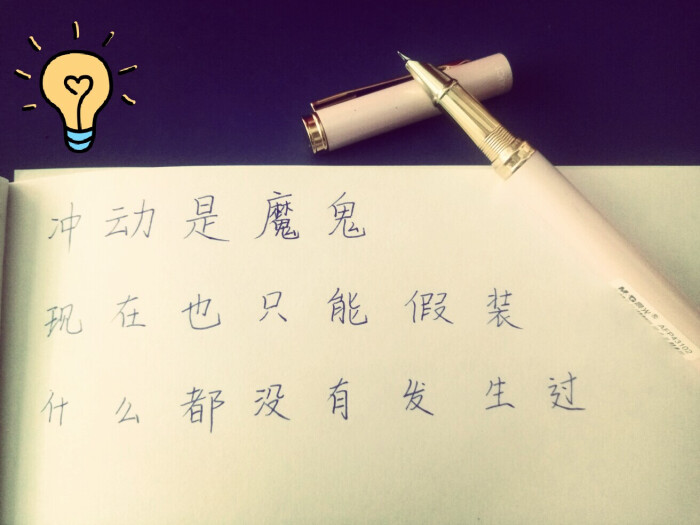 冲动是魔鬼
现在也只能假装
什么都没有发生过
M&G晨光
AFP43102